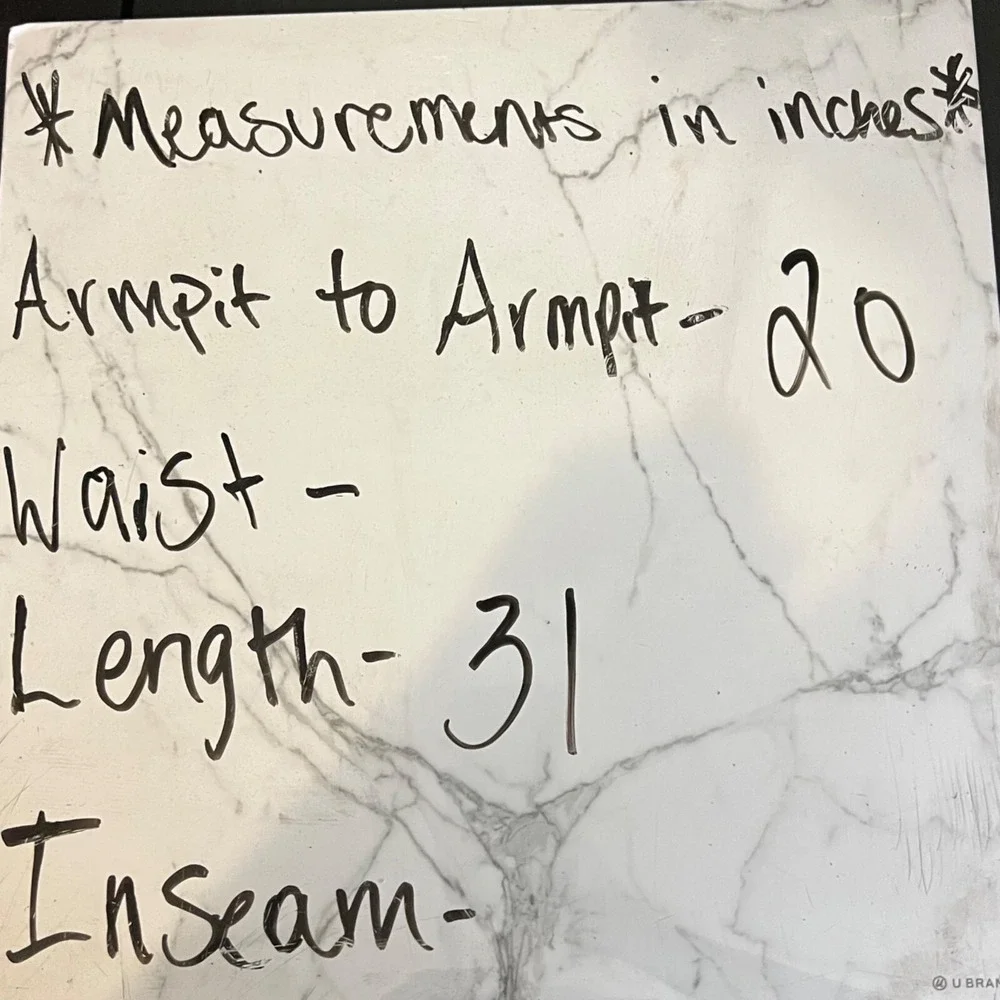 *Measurements in inches*
Armpit to Armpit- 20
Waist -
Length- 31
Inseam-
U BRAN